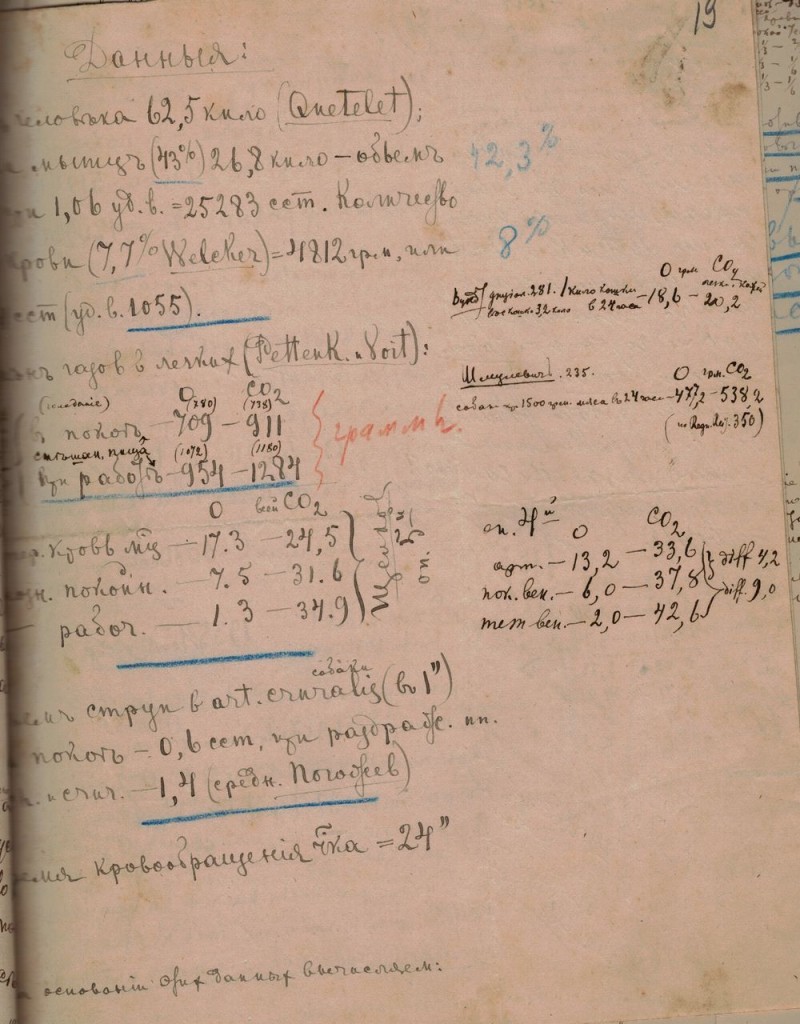 19
Данныя:
человѣка 62,5 кило (Quetelet);
мышцъ (43%) 26,8 кило – объемъ 42,3%
при 1,06 уд. в. = 25283 cct. Количество
крови (7,7% Welcker) = 4812 грм, или 8%
cct (уд. в. 1055).
O грм CO2
281. 1 кило кошки
3,2 кило в 24 часа – 18,6 – 20,2
газовъ в легкихъ (Pettenk. и Voit):
(голоданіе) O (780) CO2 (738)
покоѣ – 709 – 911
(1072) (1180)
при работѣ – 954 – 1284
граммъ.
Шмулевичъ. 235. O грм. CO2
собака 1500 грм. мяса въ 24 часа – 477,2 – 538,2
(по Regn. Reis. 350)
O CO2
кровь – 17.3 – 24,5
покойн. – 7.5 – 31.6
рабоч. – 1.3 – 34.9
оп. 4й O CO2
арт. – 13,2 – 33,6
пок. вен. – 6,0 – 37,8
тет. вен. – 2,0 – 42,6
diff 4,2
diff. 9,0
собаки
струи в art. cruralis (въ 1")
покоѣ – 0,6 cct, при раздраж. нп.
– 1,4 (средн. Погожев)
время кровообращенія = 24"
основаніи этих данных вычисляем: